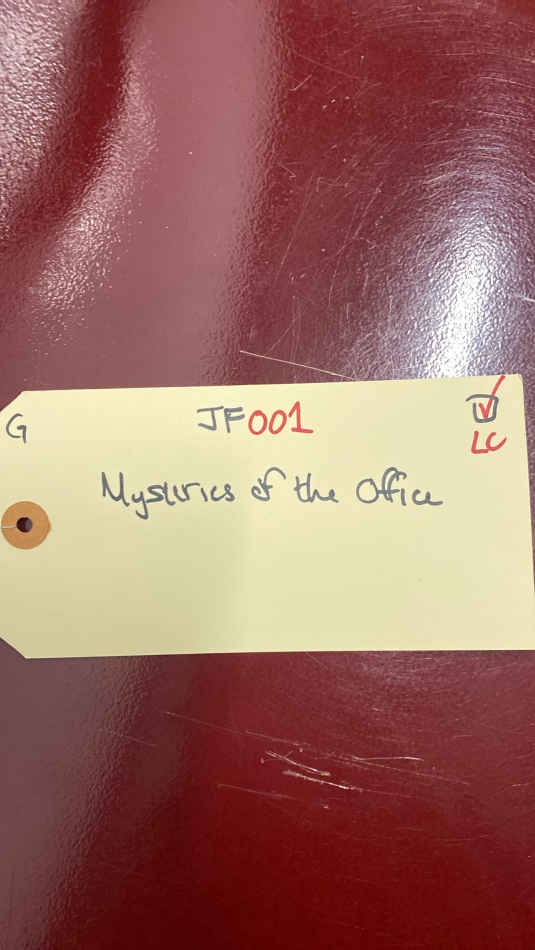 G JF001
LC
Mysteries of the Office